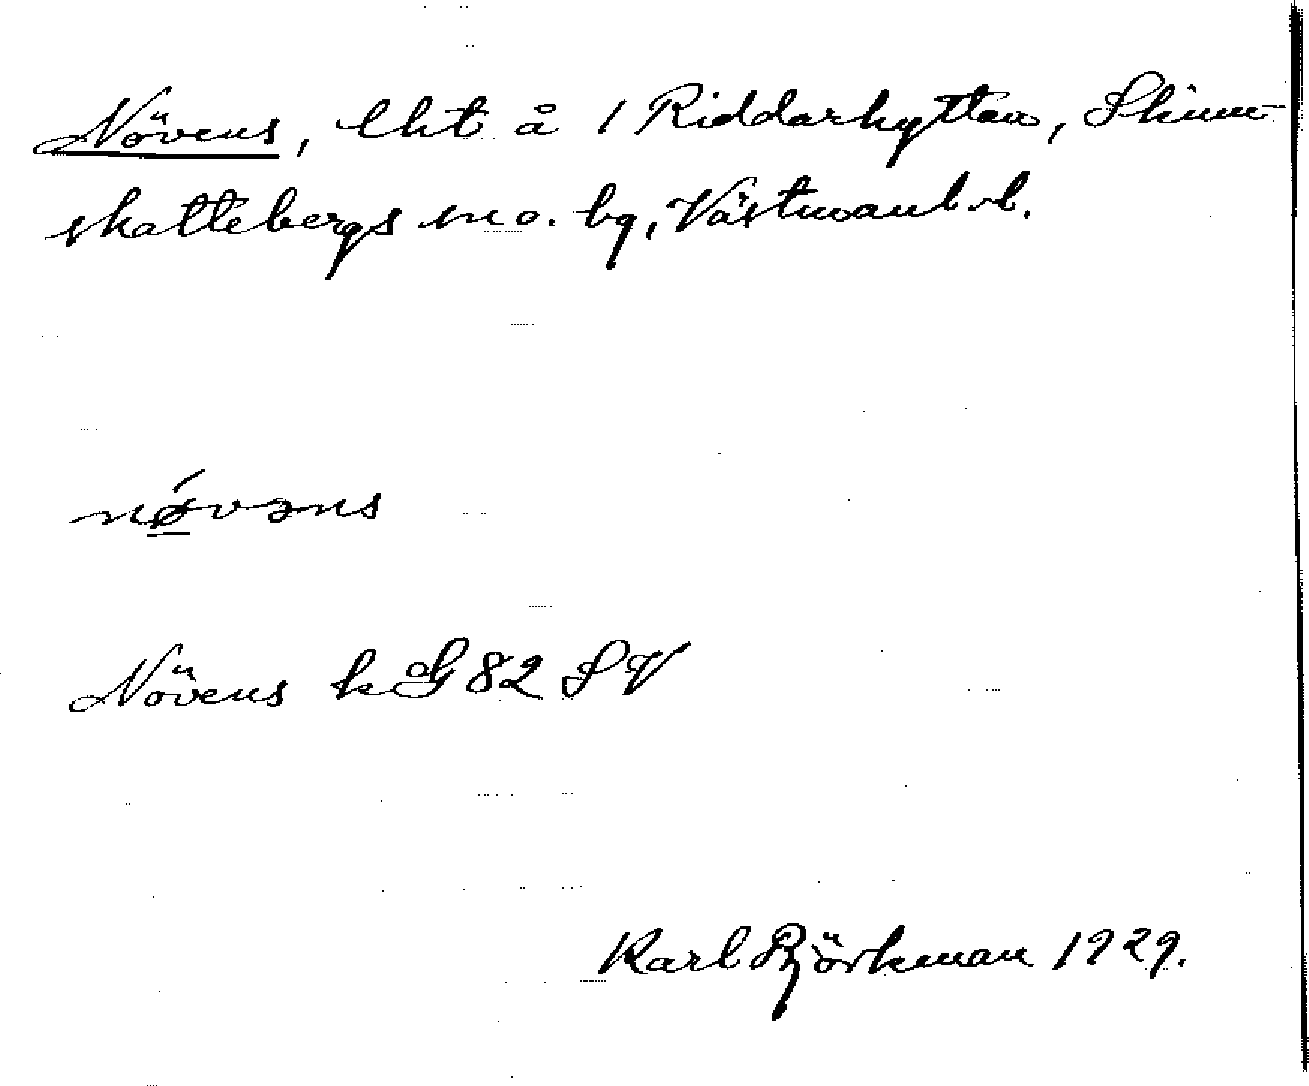 Növens, lht å 1 Riddarhyttan, Skinn-
skattebergs sn o. bg, Västmanl. l.
nǿvəns
Növens k G 82 SV
Karl Björkman 1929.